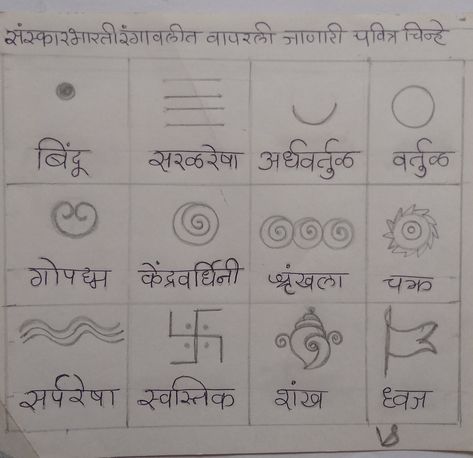 संस्कारभारती रंगावलीत वापरली जाणारी पवित्र चिन्हे
बिंदू सरळरेषा अर्धवर्तुळ वर्तुळ
गोपद्म केंद्रवर्धिनी श्रृंखला चक्र
सर्परेषा स्वस्तिक शंख ध्वज